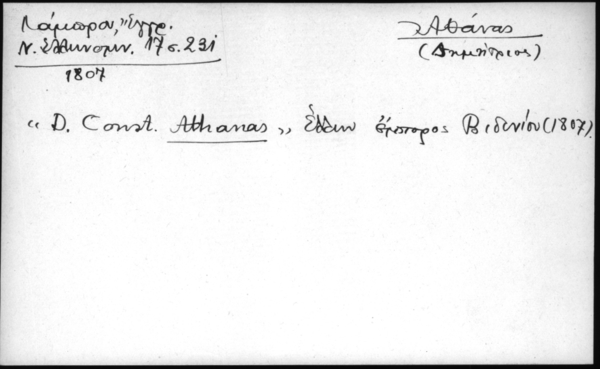 Λάμπρου, Ἔγγρ.
Ν. Ἑλληνομν. 17 σ. 231
1807
Ἀθάνας
(Δημήτριος)
"D. Const. Athanas" Ἕλλην ἔμπορος Βιδινίου (1807).